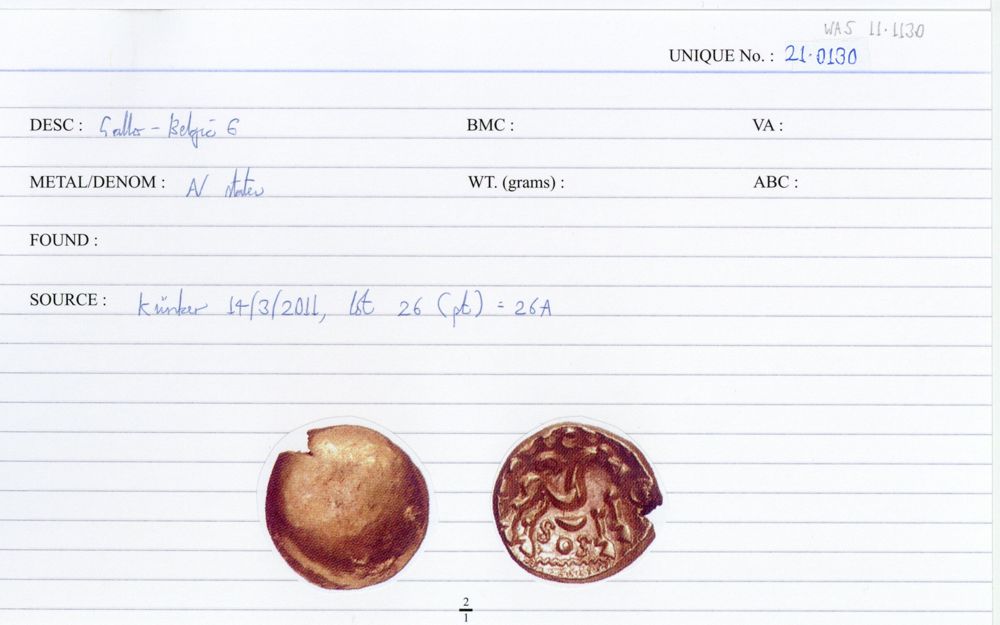 WAS 11.1130
UNIQUE No. : 21.0130
DESC : Gallo-Belgic G BMC : VA :
METAL/DENOM : AV stater WT. (grams) : ABC :
FOUND :
SOURCE : Künker 14/3/2011, lot 26 (pt) = 26A
2
1